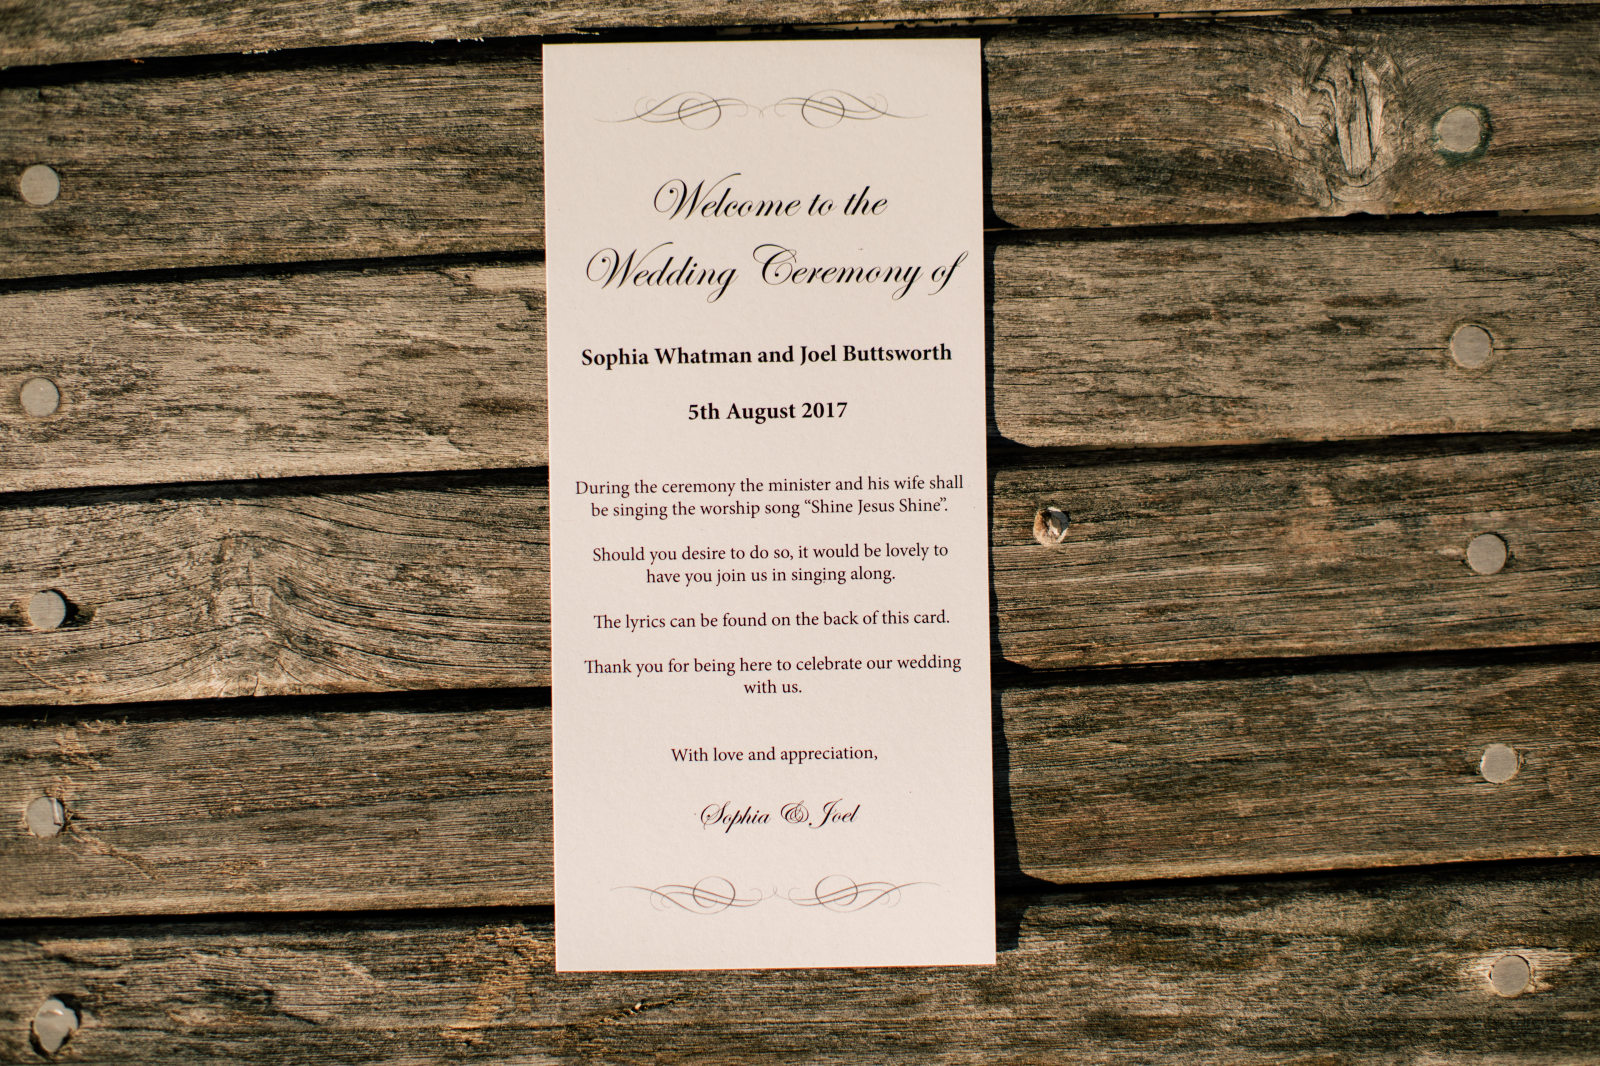 Welcome to the
Wedding Ceremony of
Sophia Whatman and Joel Buttsworth
5th August 2017
During the ceremony the minister and his wife shall
be singing the worship song “Shine Jesus Shine”.
Should you desire to do so, it would be lovely to
have you join us in singing along.
The lyrics can be found on the back of this card.
Thank you for being here to celebrate our wedding
with us.
With love and appreciation,
Sophia & Joel